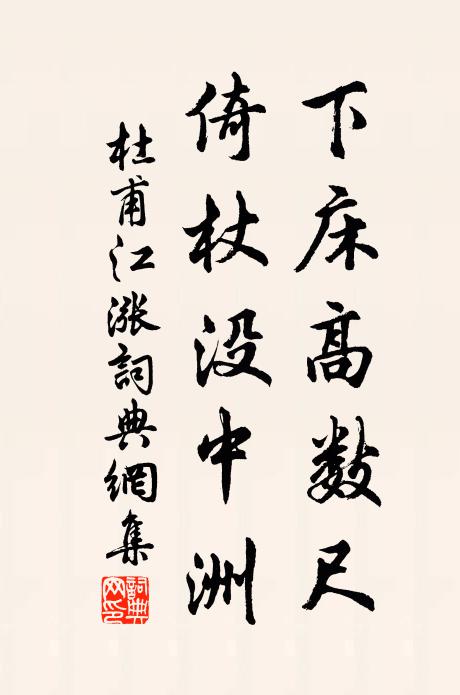 下床高数尺
倚杖没中洲
杜甫江漲詞典網集
詞典网印